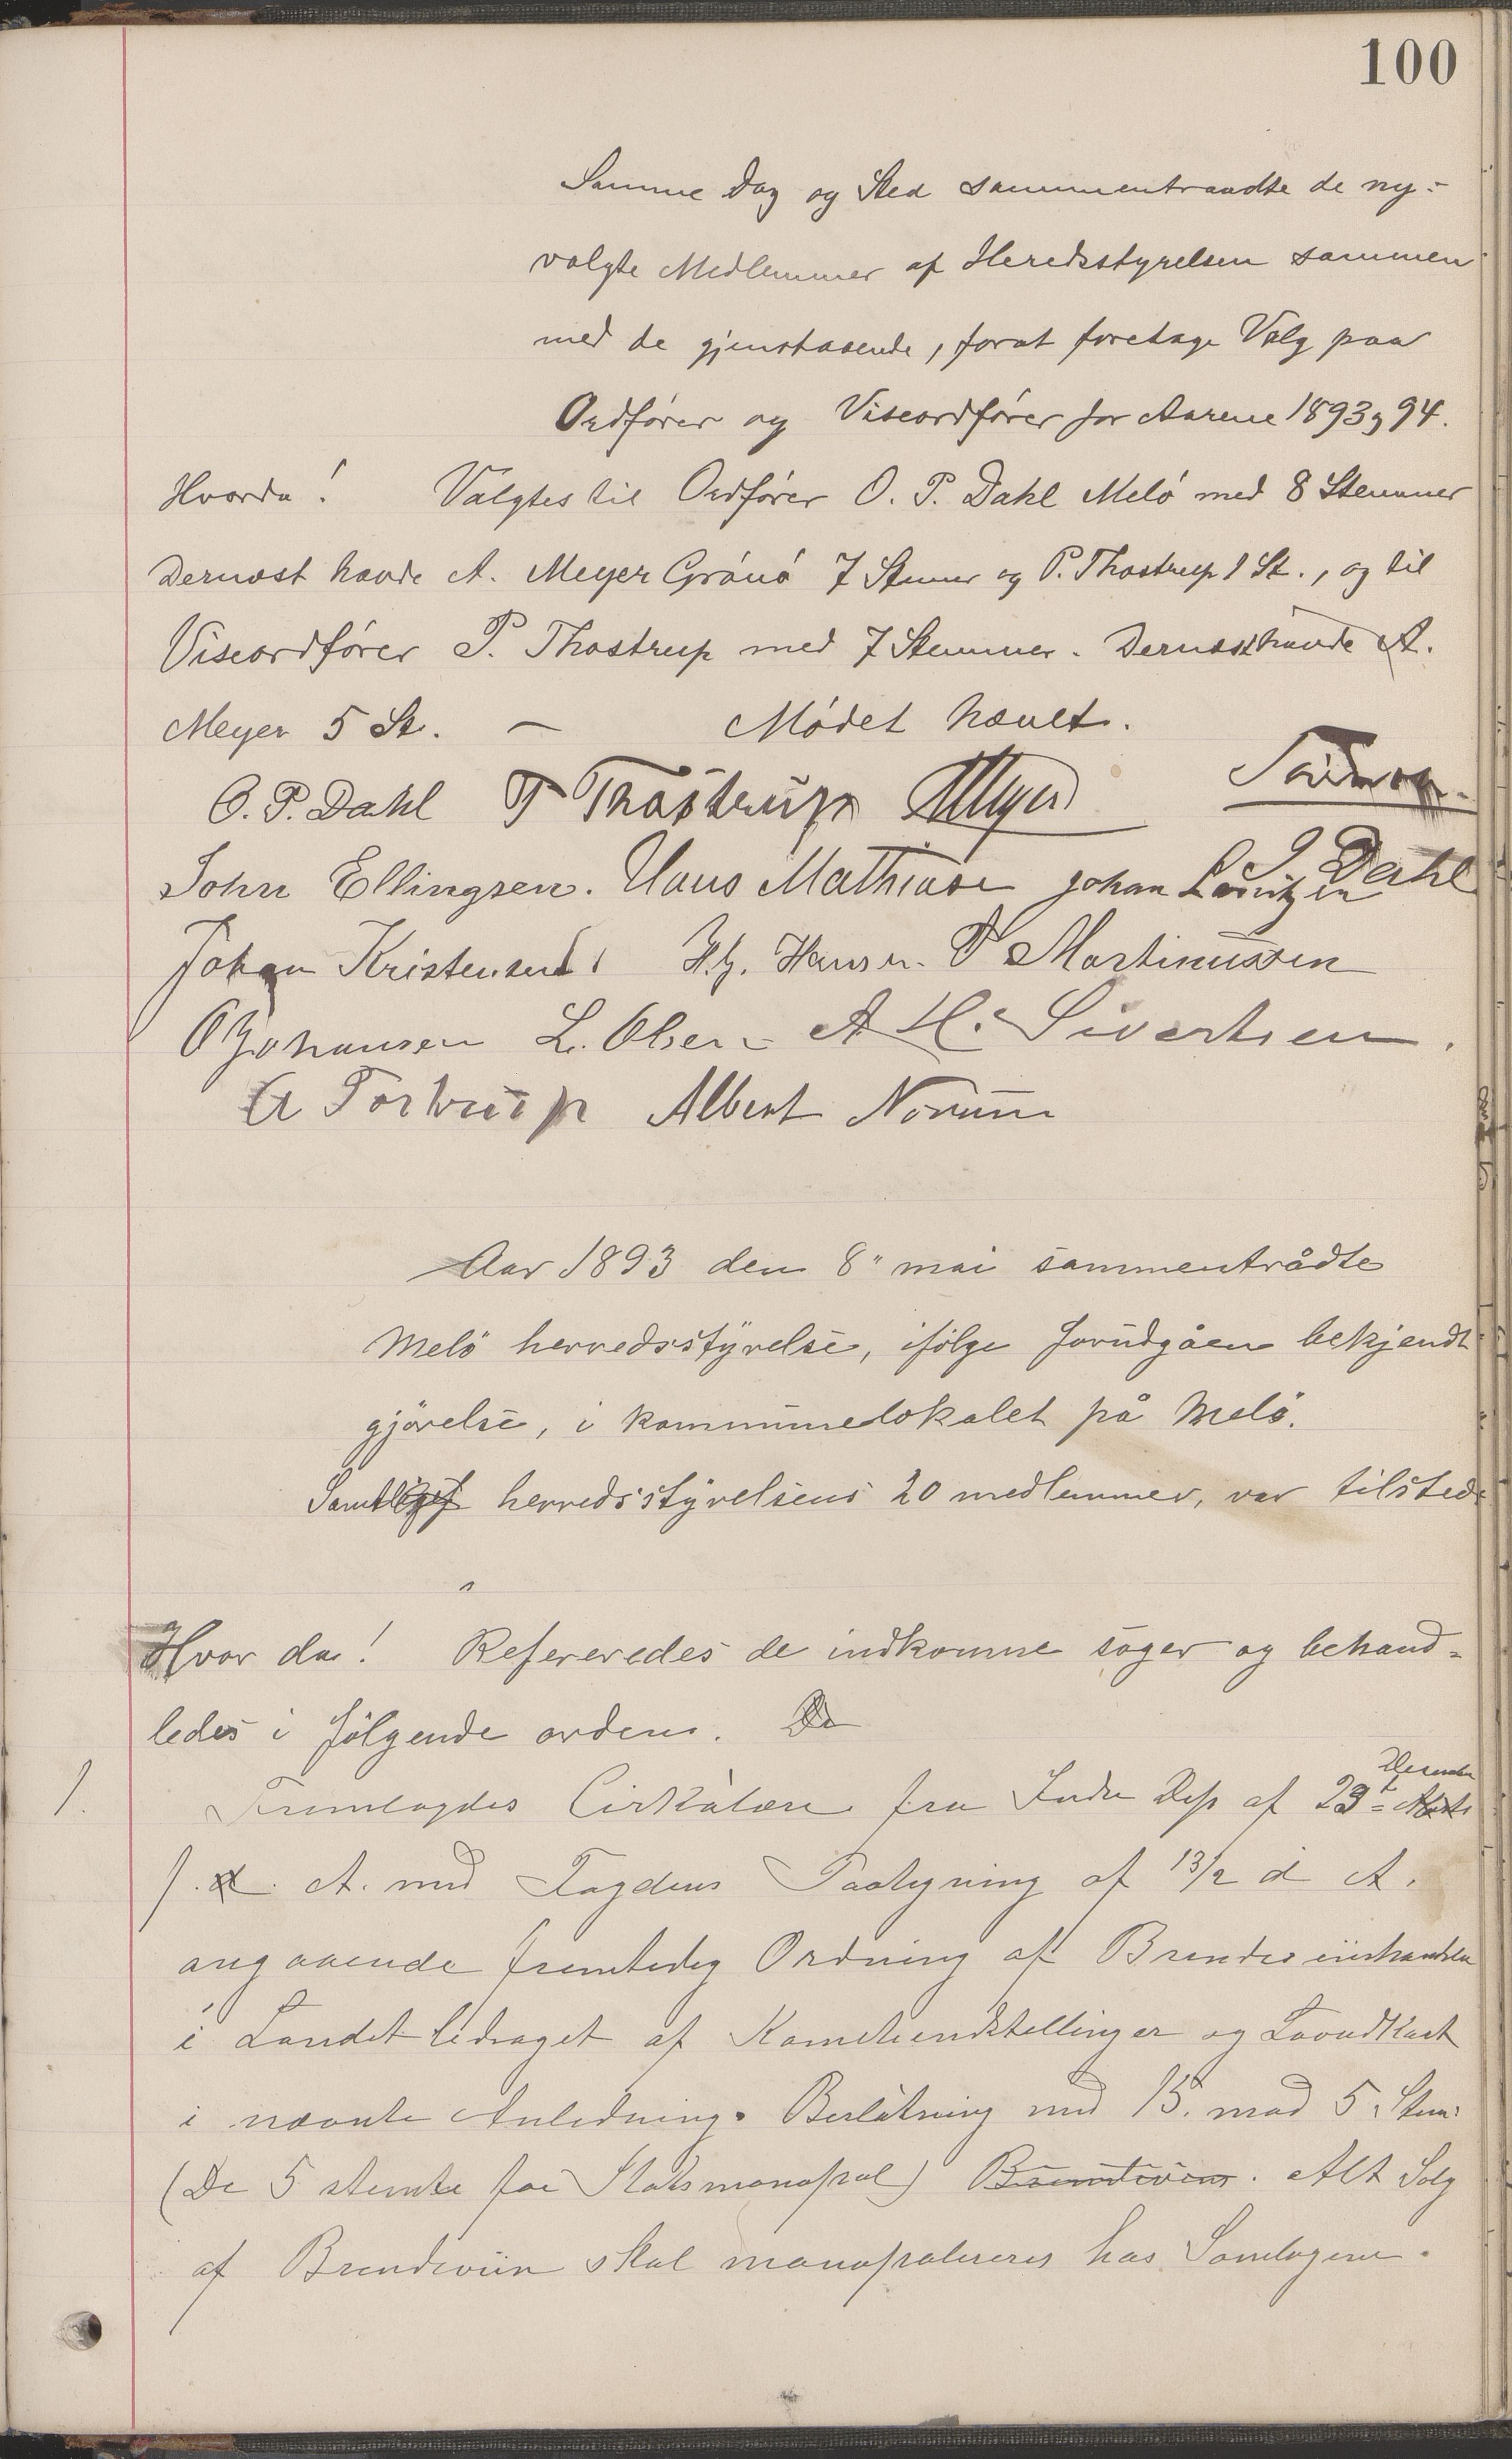 100
Samme Dag og Sted sammentraadte de ny-
valgte Medlemmer af Heredsstyrelsen sammen
med de gjenstaaende, forat foretage Valg paa
Ordfører og Viseordfører for Aarene 1893 og 94.
Hvorda! Valgtes til Ordfører O. P. Dahl Melö med 8 Stemmer
Dernæst havde A. Meyer Grönö 7 Stemer og P. Thostrup 1 St., og til
Viseordfører P. Thostrup med 7 Stemmer. Dernæst havde A.
Meyer 5 St. — Mødet hævet.
O. P. Dahl P Thostrup AMeyer
John Ellingsen. Hans Mathiase Johan Lauritzen J Dahl
Johan Kristensen H. J. Hansen. P Martinussen
O Johansen L. Olsen A H. Sivertsen.
A Tostrup Albert Norum
Aar 1893 den 8" mai sammentrådte
Melö herredsstyrelse, ifölge forudgåen bekjendt
gjörelse, i kommunelokalet på Melö.
Samtlige herredsstyrelsens 20 medlemmer, var tilstede
Hvor da! Refereredes de indkomne sager og behand-
ledes i fölgende orden. De
1. Fremlagdes Cirkulære fra Indre Dep af 23 Desember
f. A. med Fogdens Paategning af 13/2 d A.
angaaende fremtidig Ordning af Brendeviinshandelen
i Landet ledsaget af Komiteindstillinger og Lovudkast
i nævnte Anledning. Beslutning med 15. mod 5. Stem:
(De 5 stemte for Statsmonopol) Brendeviins. Alt Salg
af Brendeviin skal monopoliseres hos Samlagene.